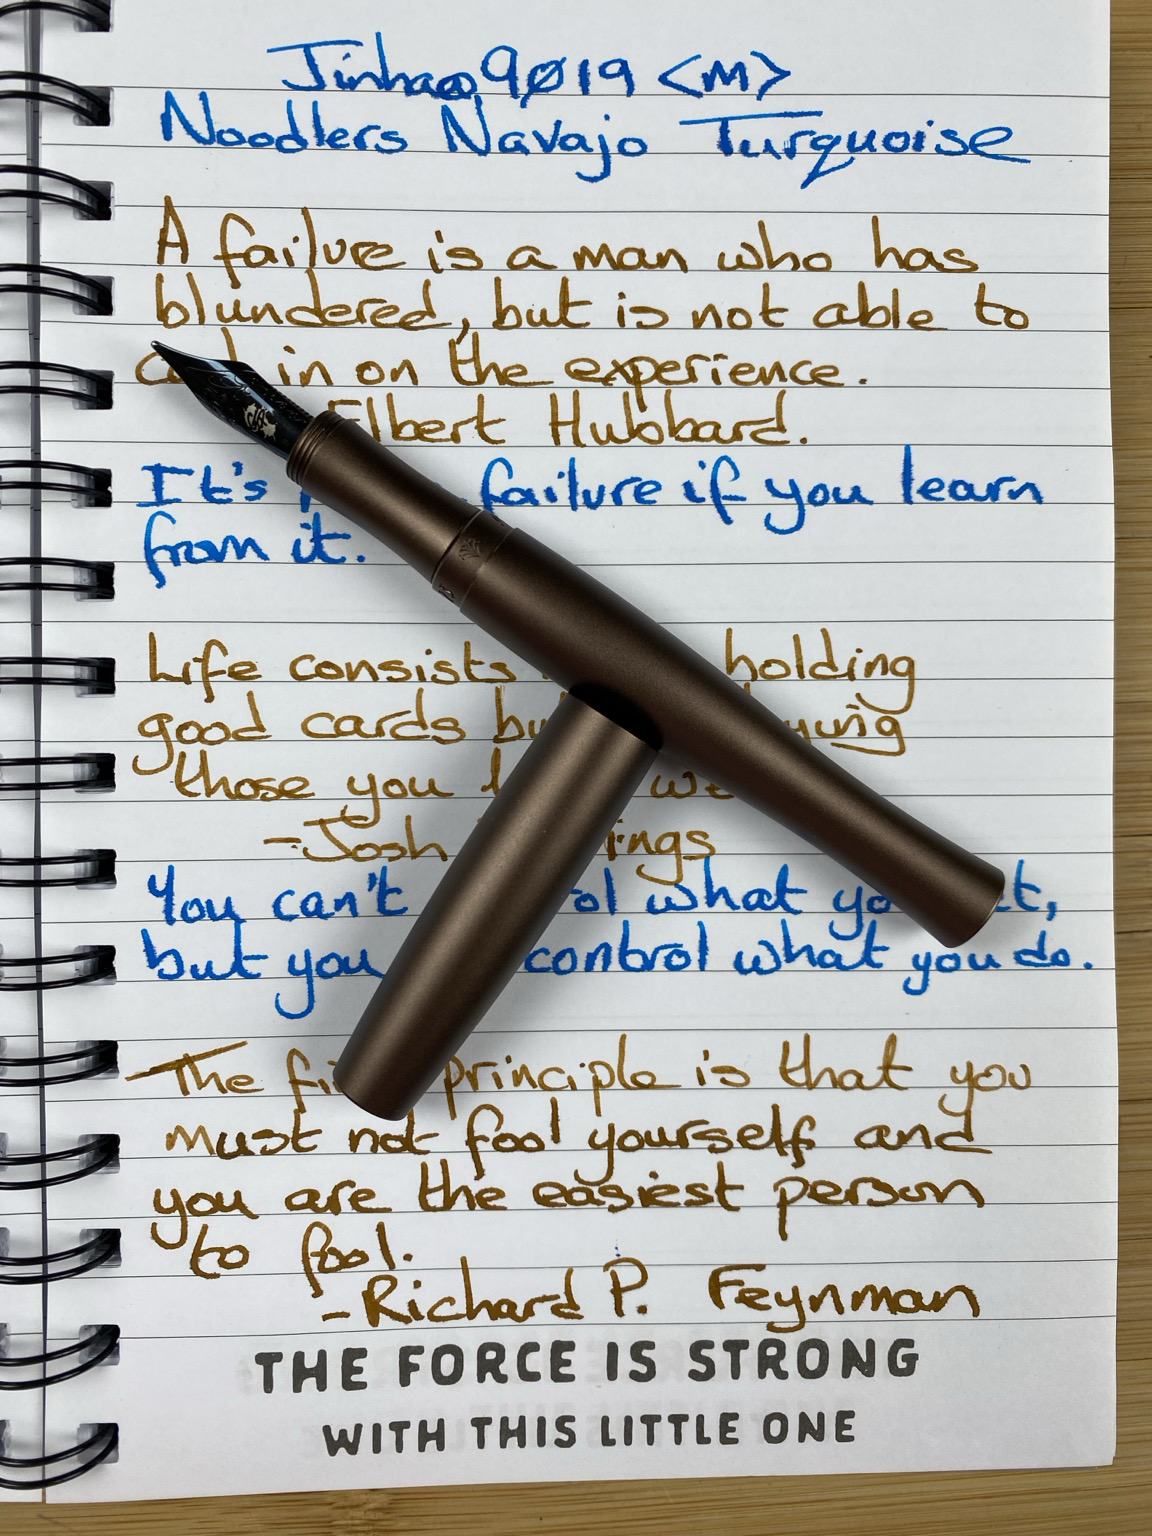 Jinhao 9019 <M>
Noodlers Navajo Turquoise
A failure is a man who has
blundered, but is not able to
in on the experience.
Elbert Hubbard.
It's failure if you learn
from it.
Life consists holding
good cards
those you
-Josh
You can't what
but you control what you do.
The principle is that you
must not fool yourself and
you are the easiest person
to fool.
-Richard P. Feynman
THE FORCE IS STRONG
WITH THIS LITTLE ONE